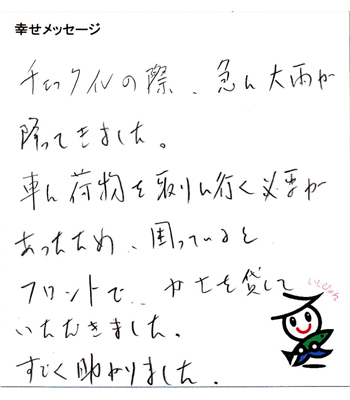 幸せメッセージ
チェックインの際、急に大雨が
降ってきました。
車に荷物を取りに行く必要が
あったため、困っていると
フロントで、かさを貸して
いただきました。
すごく助かりました。